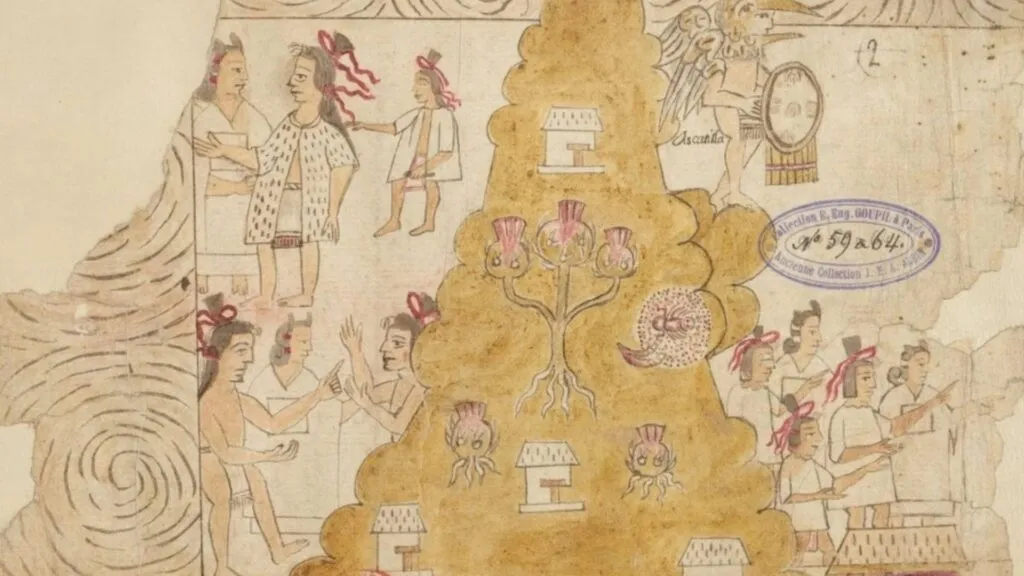 2
Ascatitla
Collection E. Eug. GOUPIL à Paris
Nº 59 a 64.
Ancienne Collection J.